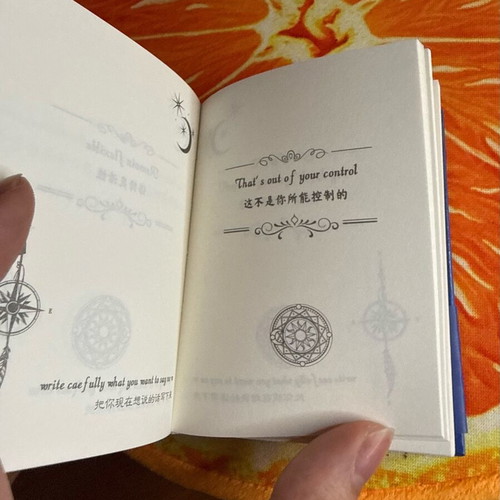 write caefully what you want to say
把你现在想说的话写下
That's out of your control
这不是你所能控制的